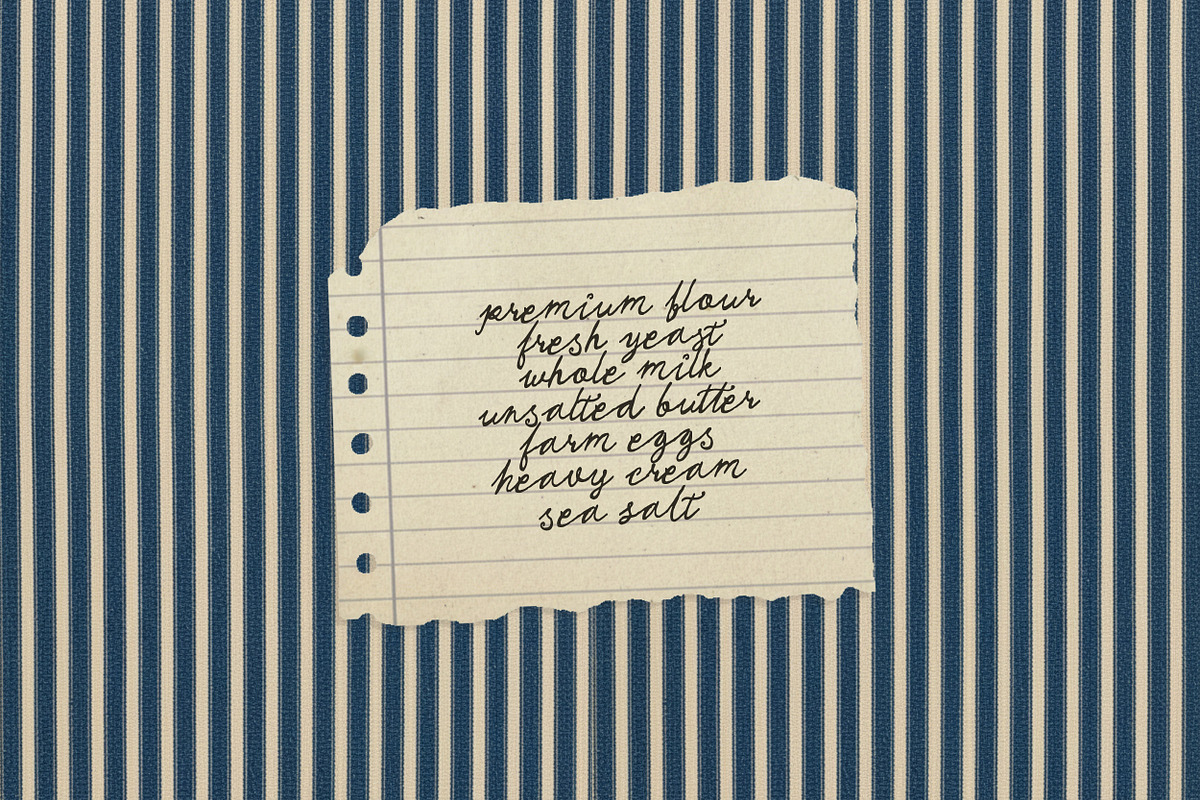 premium flour
fresh yeast
whole milk
unsalted butter
farm eggs
heavy cream
sea salt